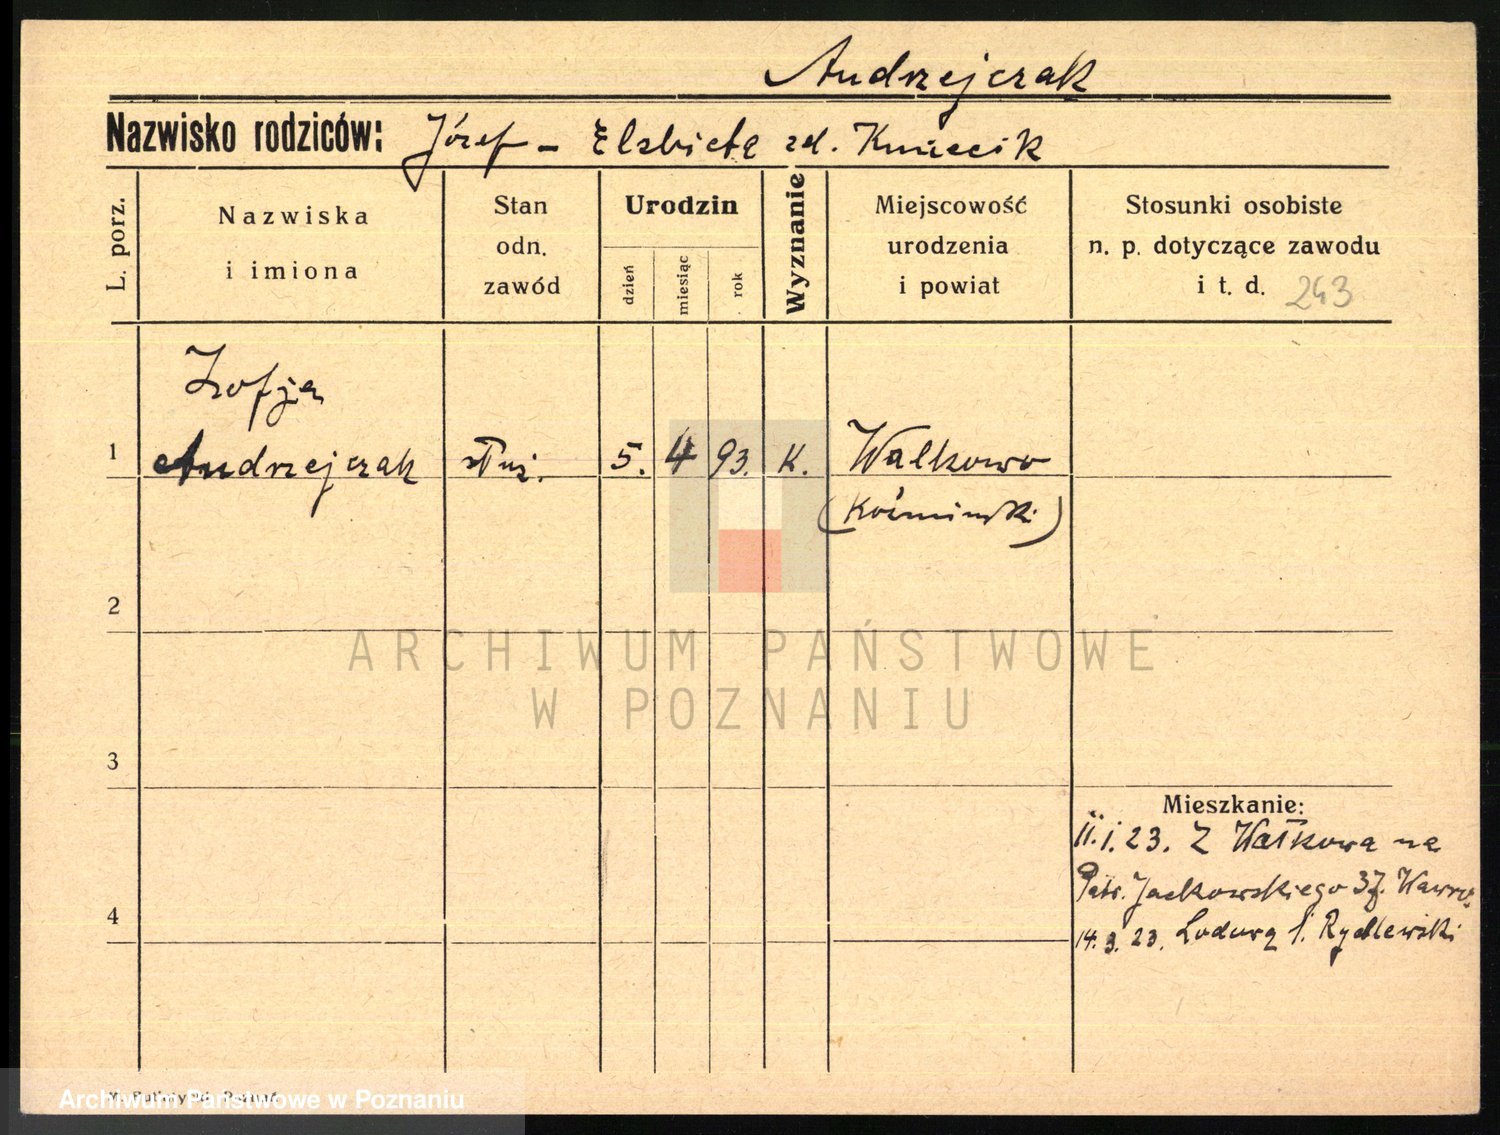 Andrzejczak
Nazwisko rodziców: Józef - Elżbieta zd. Kmiecik
L. porz.
Nazwiska
i imiona
Stan
odn.
zawód
Urodzin
dzień
miesiąc
rok
Wyznanie
Miejscowość
urodzenia
i powiat
Stosunki osobiste
n. p. dotyczące zawodu
i t. d. 243
Zofja
1 Andrzejczak służ. 5. 4 93. K. Walkowo
(Koźmiński)
2
ARCHIWUM PAŃSTWOWE
W POZNANIU
3
Mieszkanie:
11.1.23. Z Wałkowa na
Patr. Jackowskiego 37. Wawrz.
4
14.3.23. Rydlewski
Archiwum Państwowe w Poznaniu